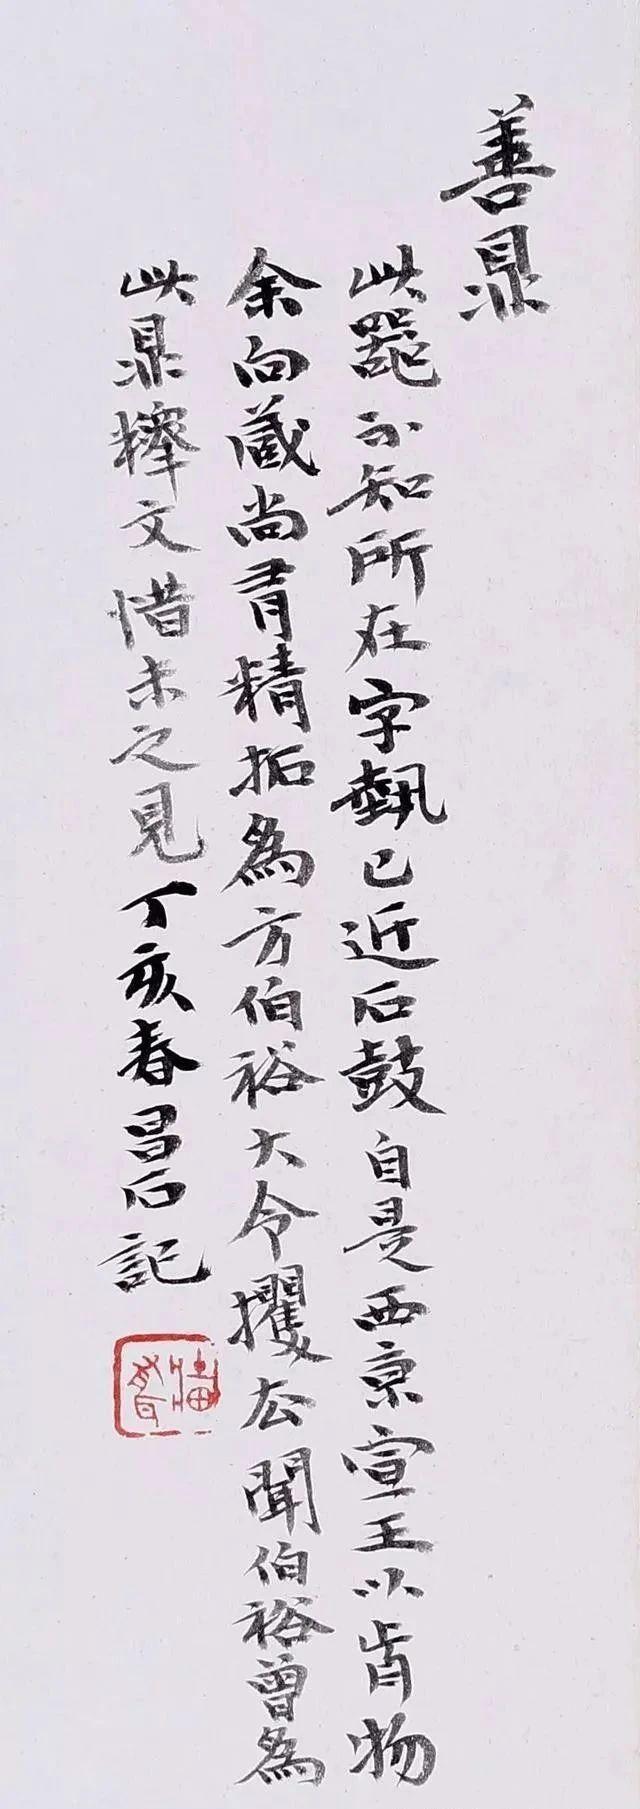 善鼎
此器不知所在字埶已近石鼓自是西京宣王以前物
余向藏尚有精拓為方伯裕大令攫去聞伯裕曾為
此鼎釋文惜未之見丁亥春昌石記